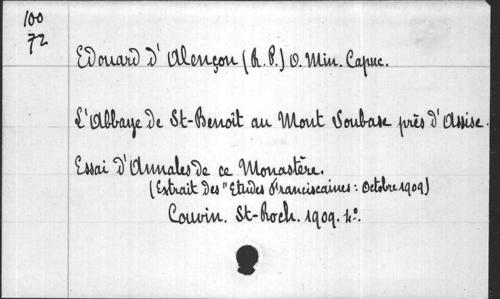 100
72
Edouard d'Alençon (R.P.) O. Min. Capuc.
L'Abbaye de St-Benoît au Mont Soubase près d'Assise.
Essai d'Annales de ce Monastère.
(Extrait des "Etudes Franciscaines: Octobre 1909)
Couvin. St-Roch. 1909. 4º.